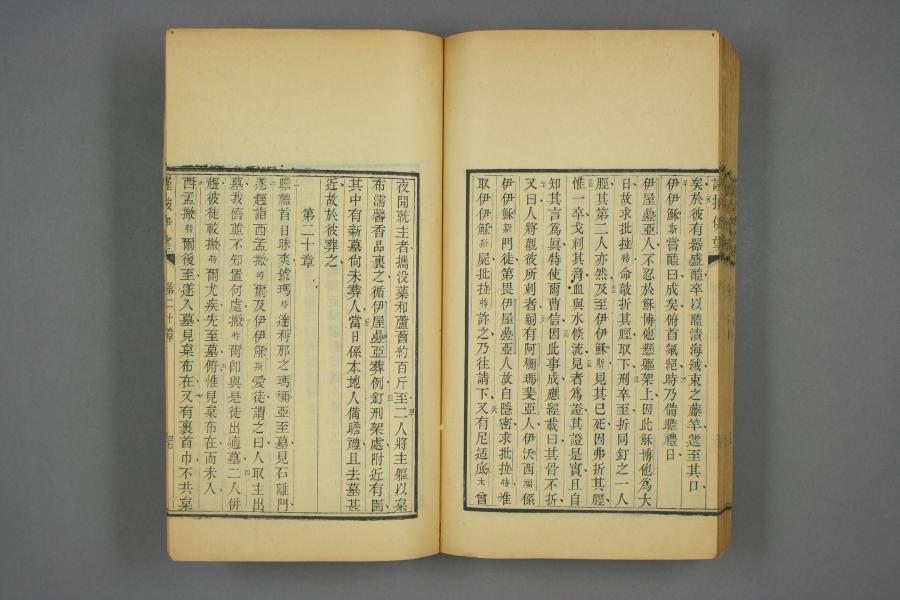 矣於彼有器盛醯卒以醯漬海絨束之藤竿遞至其口
伊伊穌斯嘗醯曰成矣俯首氣絕時乃備瞻禮日
伊屋疊亞人不忍於穌博他懸軀架上因此穌博他爲大
日故求批拉特命敲折其脛取下刑卒至折同釘之一人
脛其第二人亦然及至伊伊穌斯見其已死因弗折其脛
惟一卒戈刺其脅血與水倏流見者爲證其證是實且自
知其言爲眞特使爾曹信因此事成應經載曰其骨不折
又曰人將觀彼所刺者嗣有阿
瑪斐亞人伊沃西福係
伊伊穌斯門徒第畏伊屋疊亞人故自隱密求批拉特准
取伊伊穌斯屍批拉特許之乃往請下又有尼适底木曾
夜間就主者攜沒藥和蘆薈約百斤至二人將主軀以枲
布濡馨香品裹之循伊屋疊亞葬例釘刑架處附近有園
其中有新墓尙未葬人當日係本地人備瞻禮且去墓甚
近故於彼葬之
第二十章
瞻禮首日昧爽號瑪
達利那之瑪利亞至墓見石離門
遂趨詣西孟撇特爾及伊伊穌斯愛徒謂之曰人取主出
墓我儕並不知置何處撇特爾卽與是徒出適墓二人併
趨彼徒較撇特爾尤疾先至墓俯惟見枲布在而未入
西孟撇特爾後至遂入墓見枲布在又有裹首巾不共枲
第二十章